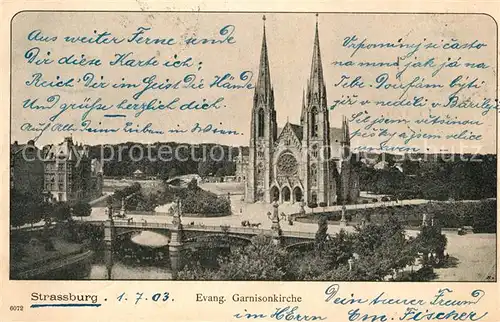 Aus weiter Ferne sende
Dir diese Karte ich;
Reich' Dir im Geist die Hände
Und grüße herzlich dich.
Auf Alle Deine Lieben in Wien.
Vzpomínej si často
na mně, jak já na
Tebe. Doufám býti
již v neděli v
Sil jsem
a jsem velice
Strassburg 1.7.03
Evang. Garnisonkirche
Dein treuer Freund
im Herrn Em. Fischer
6072